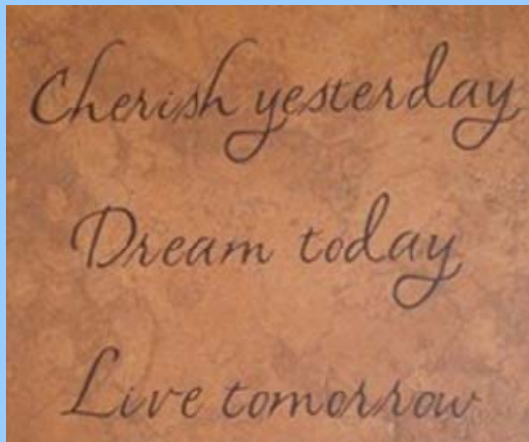 Cherish yesterday
Dream today
Live tomorrow